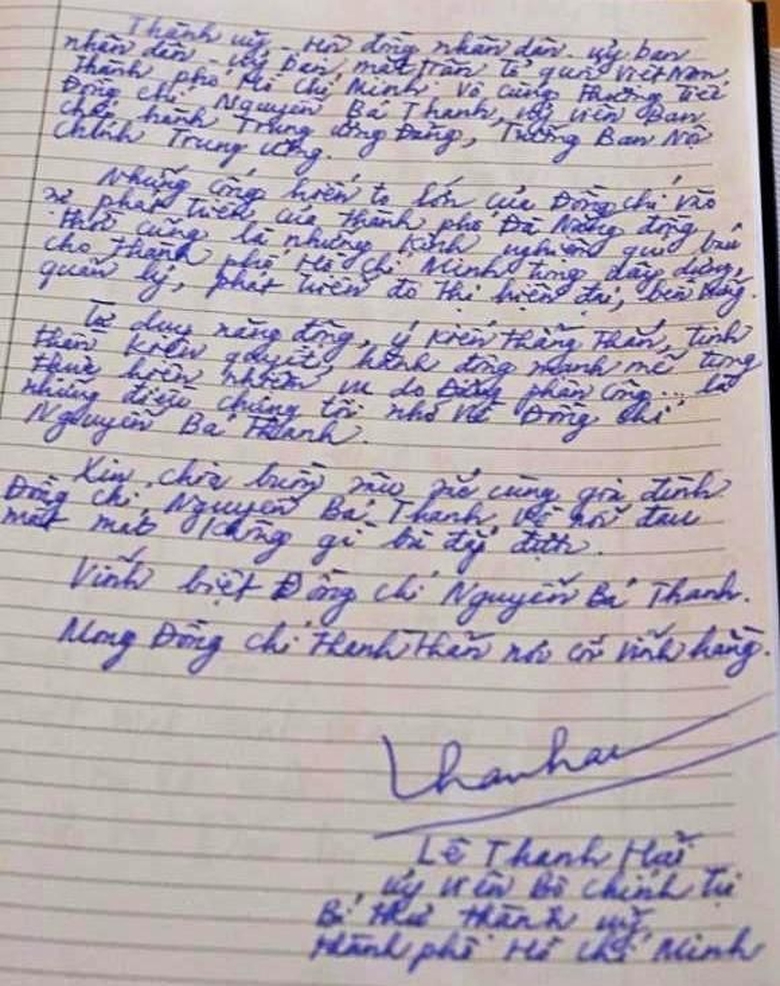 Thành uỷ, Hội đồng nhân dân - Uỷ ban
nhân dân - Uỷ ban mặt trận Tổ quốc Việt Nam
Thành phố Hồ Chí Minh Vô cùng thương tiếc
Đồng chí Nguyễn Bá Thanh, uỷ viên Ban
chấp hành Trung ương Đảng, Trưởng Ban Nội
Chính Trung ương.
Những cống hiến to lớn của Đồng chí vào
sự phát triển của thành phố Đà Nẵng đồng
thời cũng là những kinh nghiệm quí báu
cho thành phố Hồ Chí Minh trong xây dựng,
quản lý, phát triển đô thị hiện đại, bền vững.
Tư duy năng động, ý kiến thẳng thắn, tinh
thần kiên quyết, hành động mạnh mẽ trong
thực hiện nhiệm vụ do Đảng phân công... là
những điều chúng tôi nhớ về Đồng chí
Nguyễn Bá Thanh.
Xin chia buồn sâu sắc cùng gia đình
Đồng chí Nguyễn Bá Thanh, về nỗi đau
mất mát không gì bù đắp được.
Vĩnh biệt Đồng chí Nguyễn Bá Thanh.
Mong Đồng chí thanh thản nơi cõi vĩnh hằng.
Lê Thanh Hải
Uỷ viên Bộ chính trị
Bí thư thành uỷ
thành phố Hồ Chí Minh